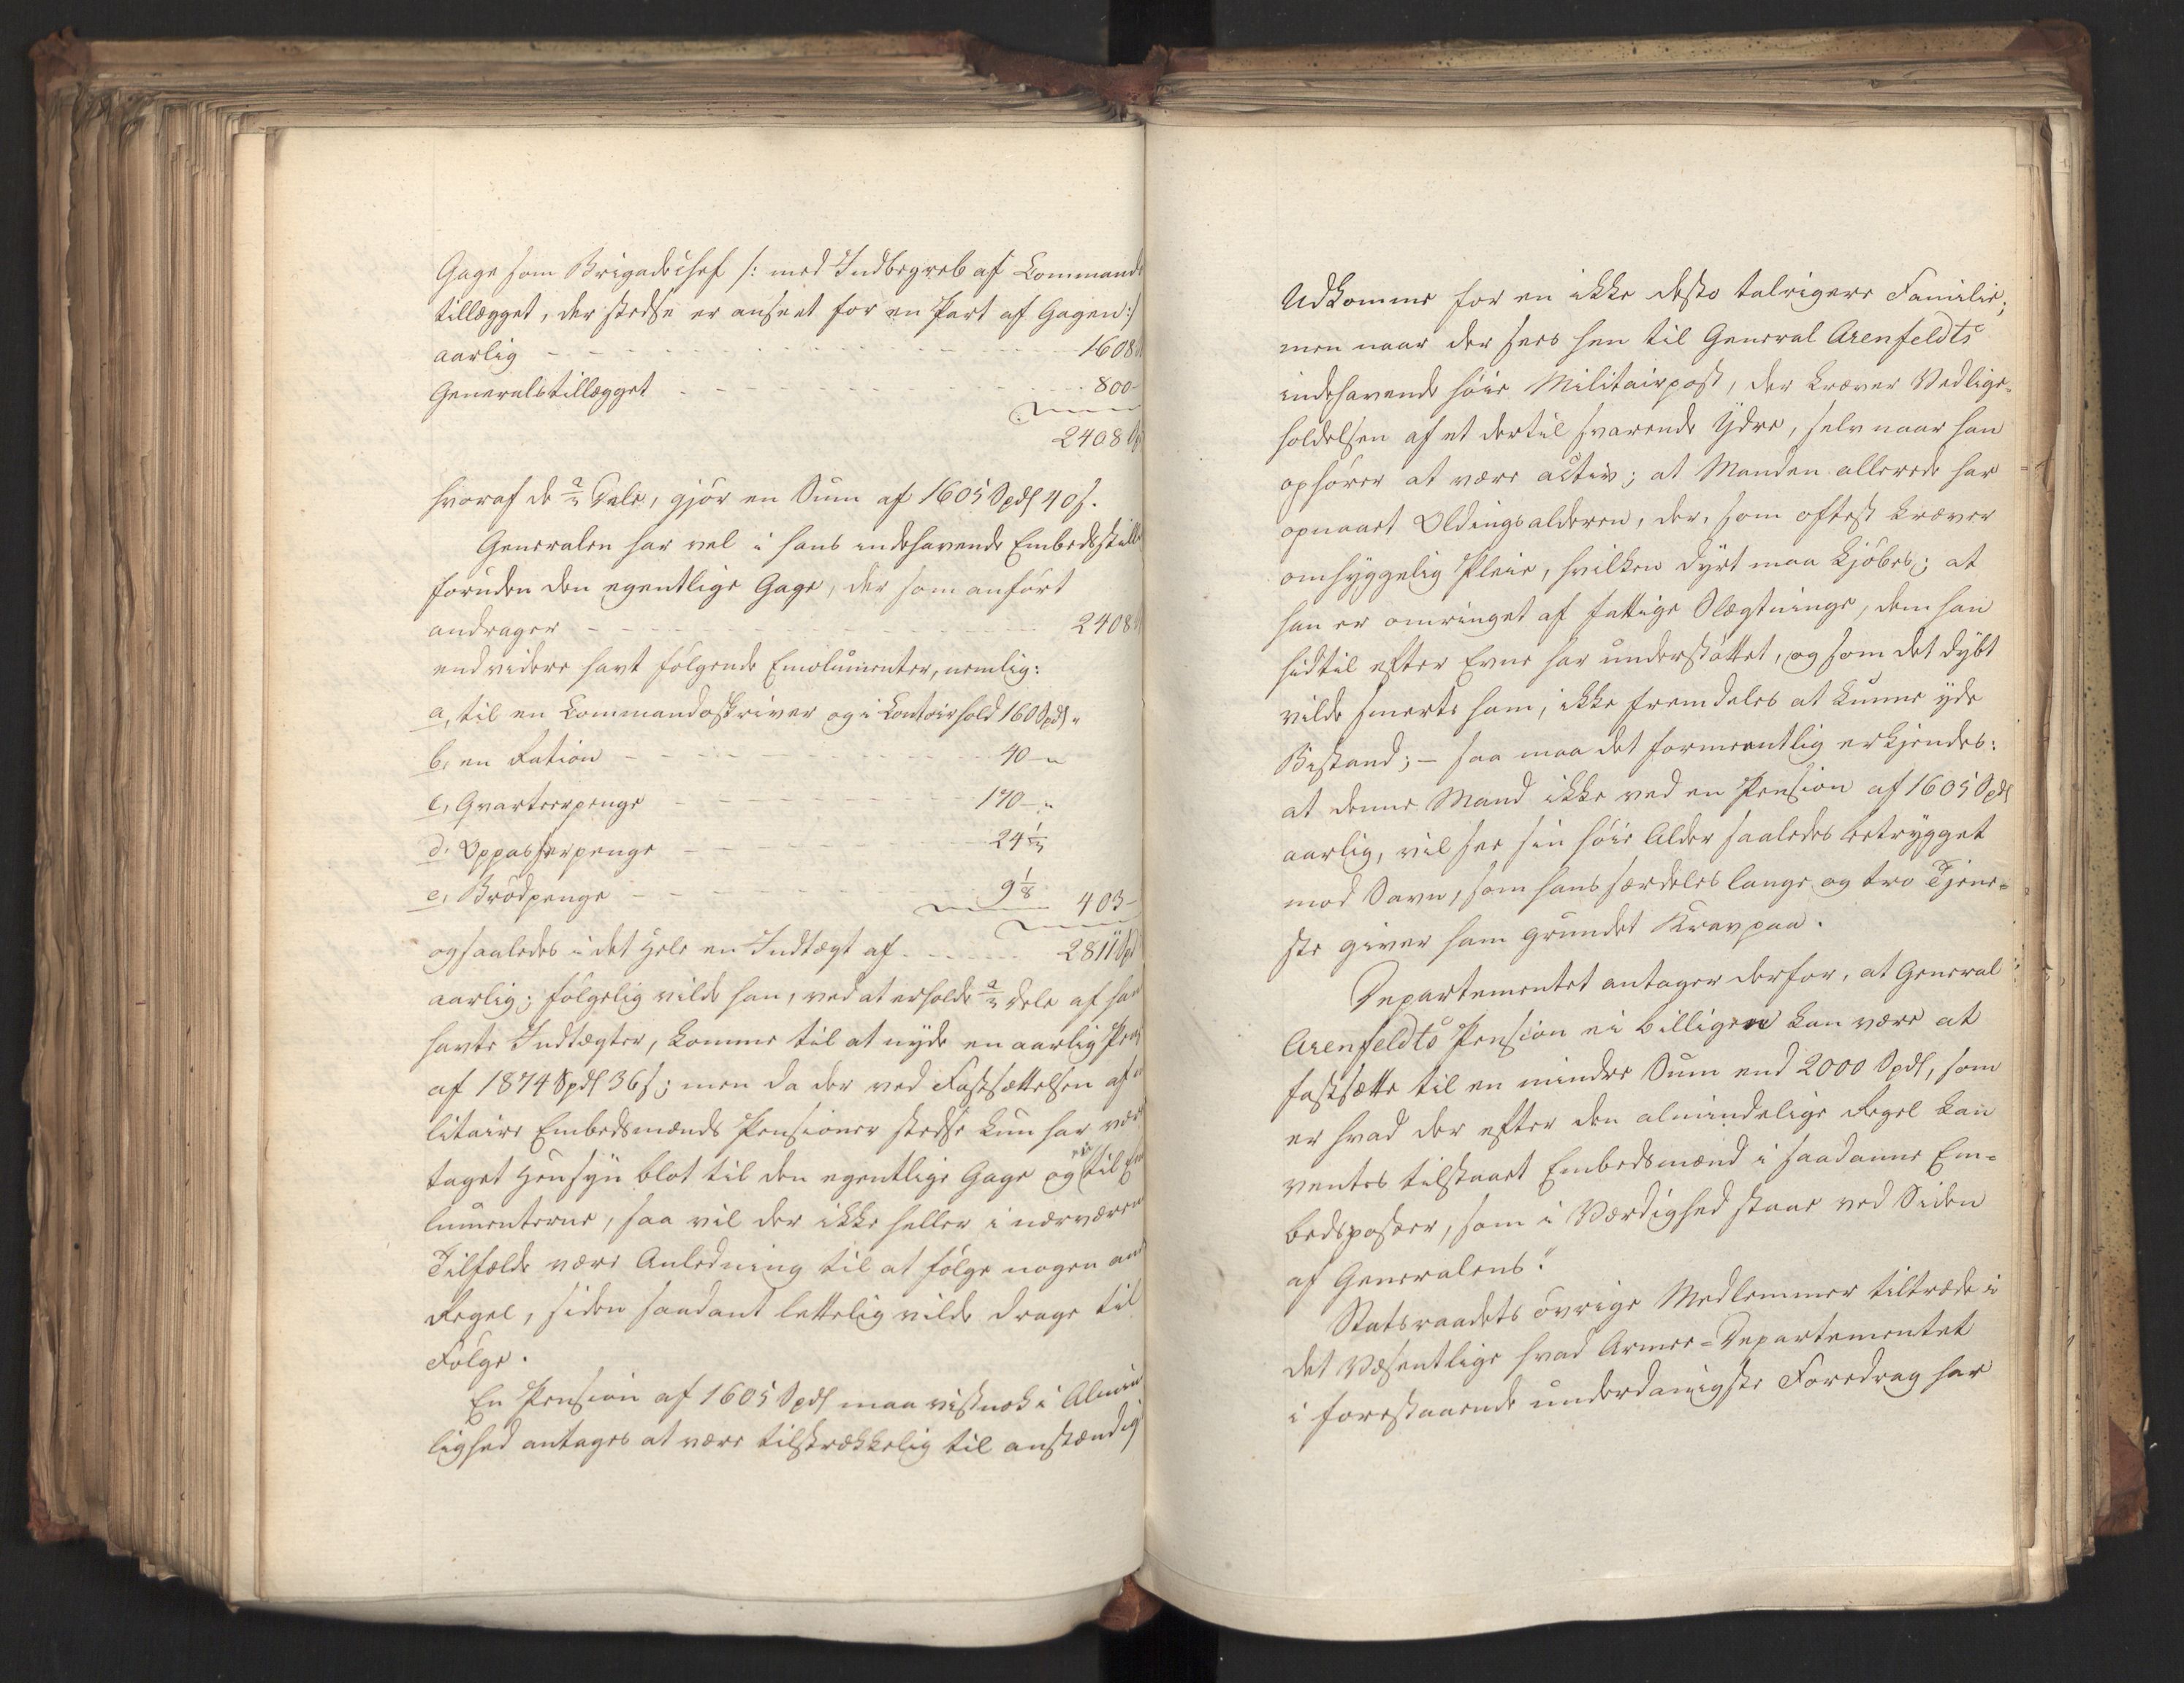 Gage som Brigadechef /: med Indbegreb af Commando
tillægget, der stedse er anseet for en Part af Gagen :/
aarlig - - - - - - - - 1608
Generalstillægget - - - - - - 800 -
2408 Sp
hvoraf de 2/3 Dele, gjør en Sum af 1605 Spdl 40 s.
Generalen har vel i hans indehavende Embedsstill
foruden den egentlige Gage, der som anført
andrager - - - - - - - 2408
end videre havt følgende Emolumenter, nemlig:
a, til en Commandoskriver og i Contoirhold 160 Spdl "
b, en Ration - - - - - - 40 - "
c, Qvarteerpenge - - - - - 170 - "
d, Oppasserpenge - - - - - 24 1/3
e, Brødpenge - - - - - 9 1/8 403 -
og saaledes i det Hele en Indtægt af - - - - 2811 Sp
aarlig; følgelig vilde han, ved at erholde 2/3 Dele af ha
havte Indtægter, komme til at nyde en aarlig Pen
af 1874 Spdl 36 s; men da der ved Fastsættelsen af
litaire Embedsmænds Pensioner stedse kun har vær
taget Hensyn blot til den egentlige Gage og ei til E
lumenterne, saa vil der ikke heller i nærværen
Tilfælde være Anledning til at følge nogen and
Regel, siden saadant lettelig vilde drage til
Følge.
En Pension af 1605 Spdl maa vistnok i Almin
lighed antages at være tilstrækkelig til anstændig
Udkomme for en ikke desto talrigere Familie;
men naar der sees hen til General Arenfeldts
indehavende høie Militairpost, der kræver Vedlige-
holdelsen af et dertil svarende Ydre, selv naar han
ophører at være activ; at Manden allerede har
opnaaet Oldingsalderen, der, som oftest kræver
omhyggelig Pleie, hvilken dyrt maa kjøbes; at
han er omringet af fattige Slægtninge, dem han
hidtil efter Evne har understøttet, og som det dybt
vilde smerte ham, ikke fremdeles at kunne yde
Bistand; - saa maa det formeentlig erkjendes:
at denne Mand ikke ved en Pension af 1605 Spdl
aarlig, vil see sin høie Alder saaledes betrygget
mod Savn, som hans særdeles lange og tro Tjene-
ste giver ham grundet Krav paa.
Departementet antager derfor, at General
Arenfeldts Pension ei billigen kan være at
fastsætte til en mindre Sum end 2000 Spdl, som
er hvad der efter den almindelige Regel kan
ventes tilstaaet Embedsmænd i saadanne Em-
bedsposter, som i Værdighed staae ved Siden
af Generalens."
Statsraadets øvrige Medlemmer tiltræde i
det Væsentlige hvad Armee-Departementet
i forestaaende underdanigste Foredrag har